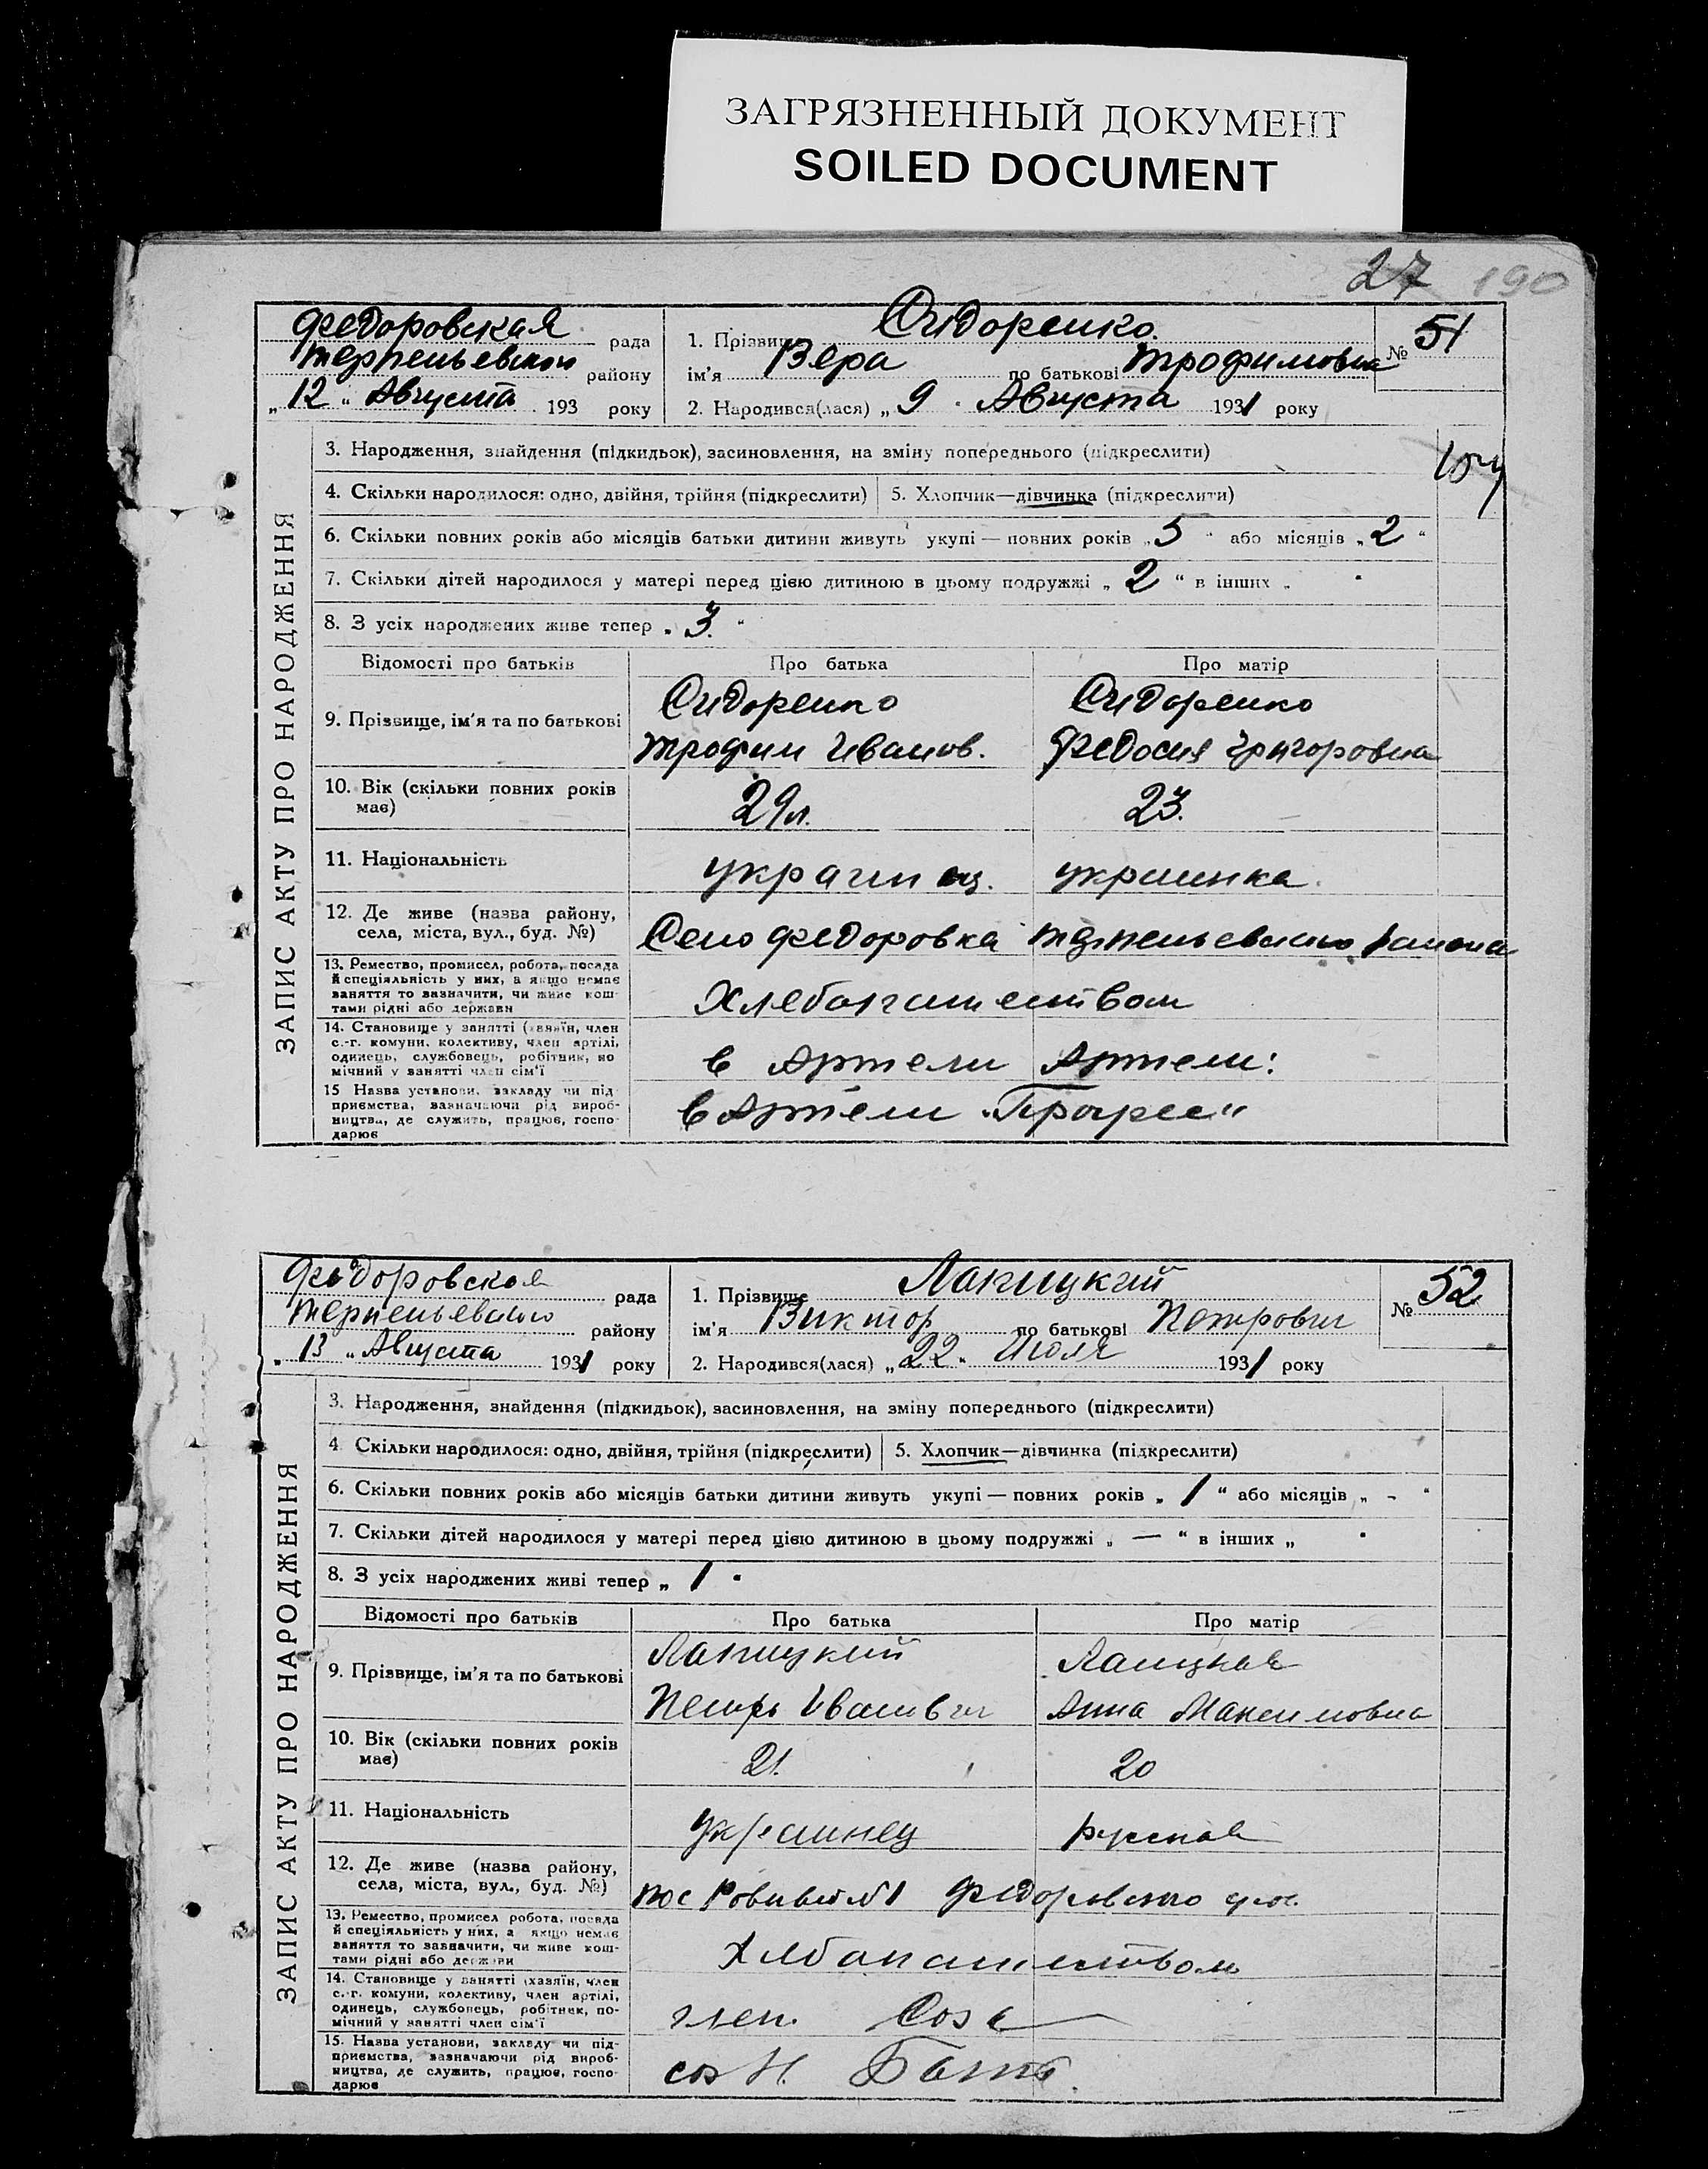 ЗАГРЯЗНЕННЫЙ ДОКУМЕНТ
SOILED DOCUMENT
27 190
Федоровская рада
района району
„12“ Августа 193 року
1. Прізвище Сидоренко
ім'я Вера по батькові Трофимовна
2. Народився(лася) „9“ Августа 1931 року
№ 51
ЗАПИС АКТУ ПРО НАРОДЖЕННЯ
3. Народження, знайдення (підкидьок), засиновлення, на зміну попереднього (підкреслити)
4. Скільки народилося: одно, двійня, трійня (підкреслити) 5. Хлопчик—дівчинка (підкреслити)
6. Скільки повних років або місяців батьки дитини живуть укупі — повних років „5“ або місяців „2“
7. Скільки дітей народилося у матері перед цією дитиною в цьому подружжі „2“ в інших „ “
8. З усіх народжених живе тепер „3.“
Відомості про батьків Про батька Про матір
9. Прізвище, ім'я та по батькові Сидоренко Сидоренко
Трофим Иванов. Федосия Григоровна
10. Вік (скільки повних років має) 29 л. 23.
11. Національність украинец. украинка.
12. Де живе (назва району, села, міста, вул., буд. №) Село Федоровка района
13. Ремество, промисел, робота, посада й спеціяльність у них, а якщо немає заняття то зазначити, чи живе коштами рідні або держави
Хлебопашеством
14. Становище у занятті (хазяїн, член с.-г. комуни, колективу, член артілі, одинець, службовець, робітник, помічний у занятті член сім'ї
в Артели Артели:
15 Назва установи, закладу чи підприємства, зазначаючи рід виробництва, де служить, працює, господарює
в Артели „Прогрес“
Федоровская рада
району
„13“ Августа 1931 року
1. Прізвище
ім'я Виктор по батькові Петрович
2. Народився(лася) „22“ Июля 1931 року
№ 52
ЗАПИС АКТУ ПРО НАРОДЖЕННЯ
3. Народження, знайдення (підкидьок), засиновлення, на зміну попереднього (підкреслити)
4 Скільки народилося: одно, двійня, трійня (підкреслити) 5. Хлопчик—дівчинка (підкреслити)
6. Скільки повних років або місяців батьки дитини живуть укупі — повних років „1“ або місяців „-“
7. Скільки дітей народилося у матері перед цією дитиною в цьому подружжі „—“ в інших „ “
8. З усіх народжених живі тепер „1“
Відомості про батьків Про батька Про матір
9. Прізвище, ім'я та по батькові
Петрь Иванович Анна Максимовна
10. Вік (скільки повних років має) 21. 20
11. Національність украинец русская
12. Де живе (назва району, села, міста, вул., буд. №) пос №1 Федоровского
13. Ремество, промисел робота, посада й спеціяльність у них, а якщо немає заняття то зазначити, чи живе коштами рідні або держави
Хлебопашеством
14. Становище у занятті (хазяїн, член с.-г. комуни, колективу, член артілі, одинець, службовець, робітник, помічний у занятті член сім'ї
член.
15. Назва установи, закладу чи підприємства, зазначаючи рід виробництва, де служить, працює, господарює